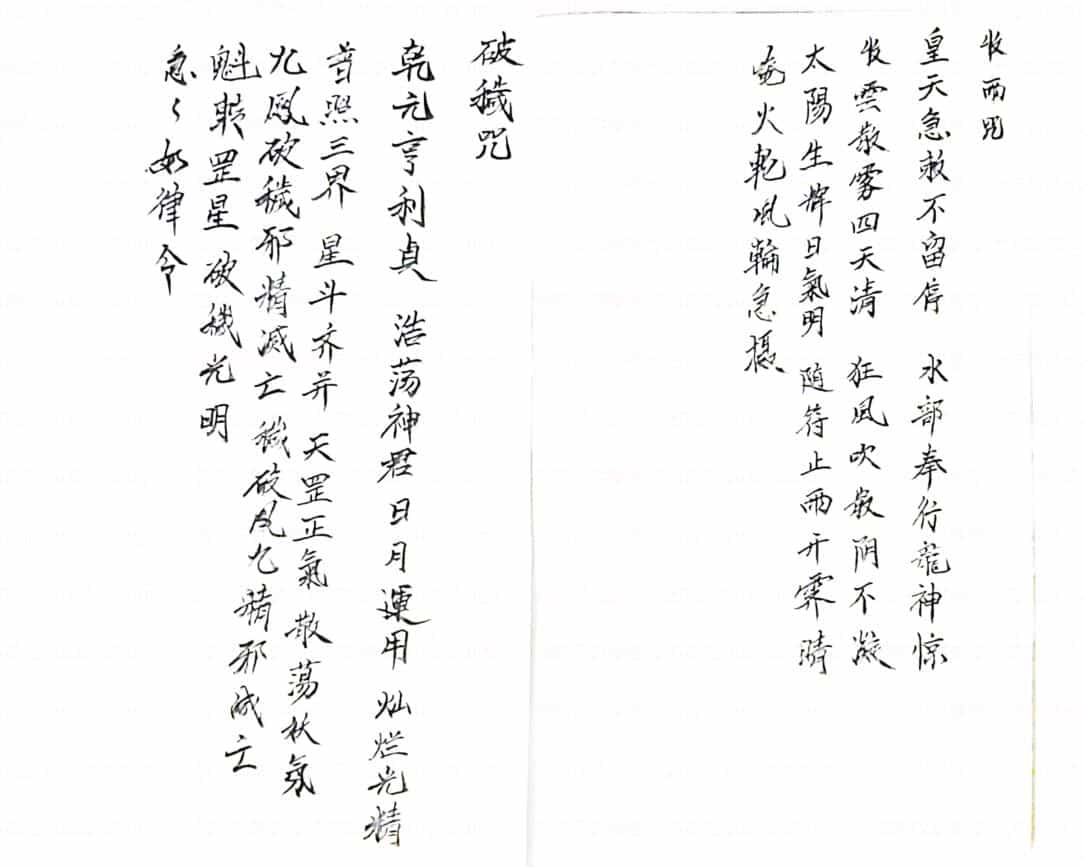 收雨咒
皇天急敕不留停 水部奉行龍神惊
收雲散雾四天清 狂風吹散阴不凝
太陽生輝日氣明 随符止雨开霁晴
火乾風輪急摄
破穢咒
乾元亨利貞 浩荡神君日月運用 灿烂光精
普照三界 星斗齐并 天罡正氣 散蕩妖氛
九鳳破穢邪精滅亡 穢破凤九精邪滅亡
魁転罡星破穢光明
急々如律令